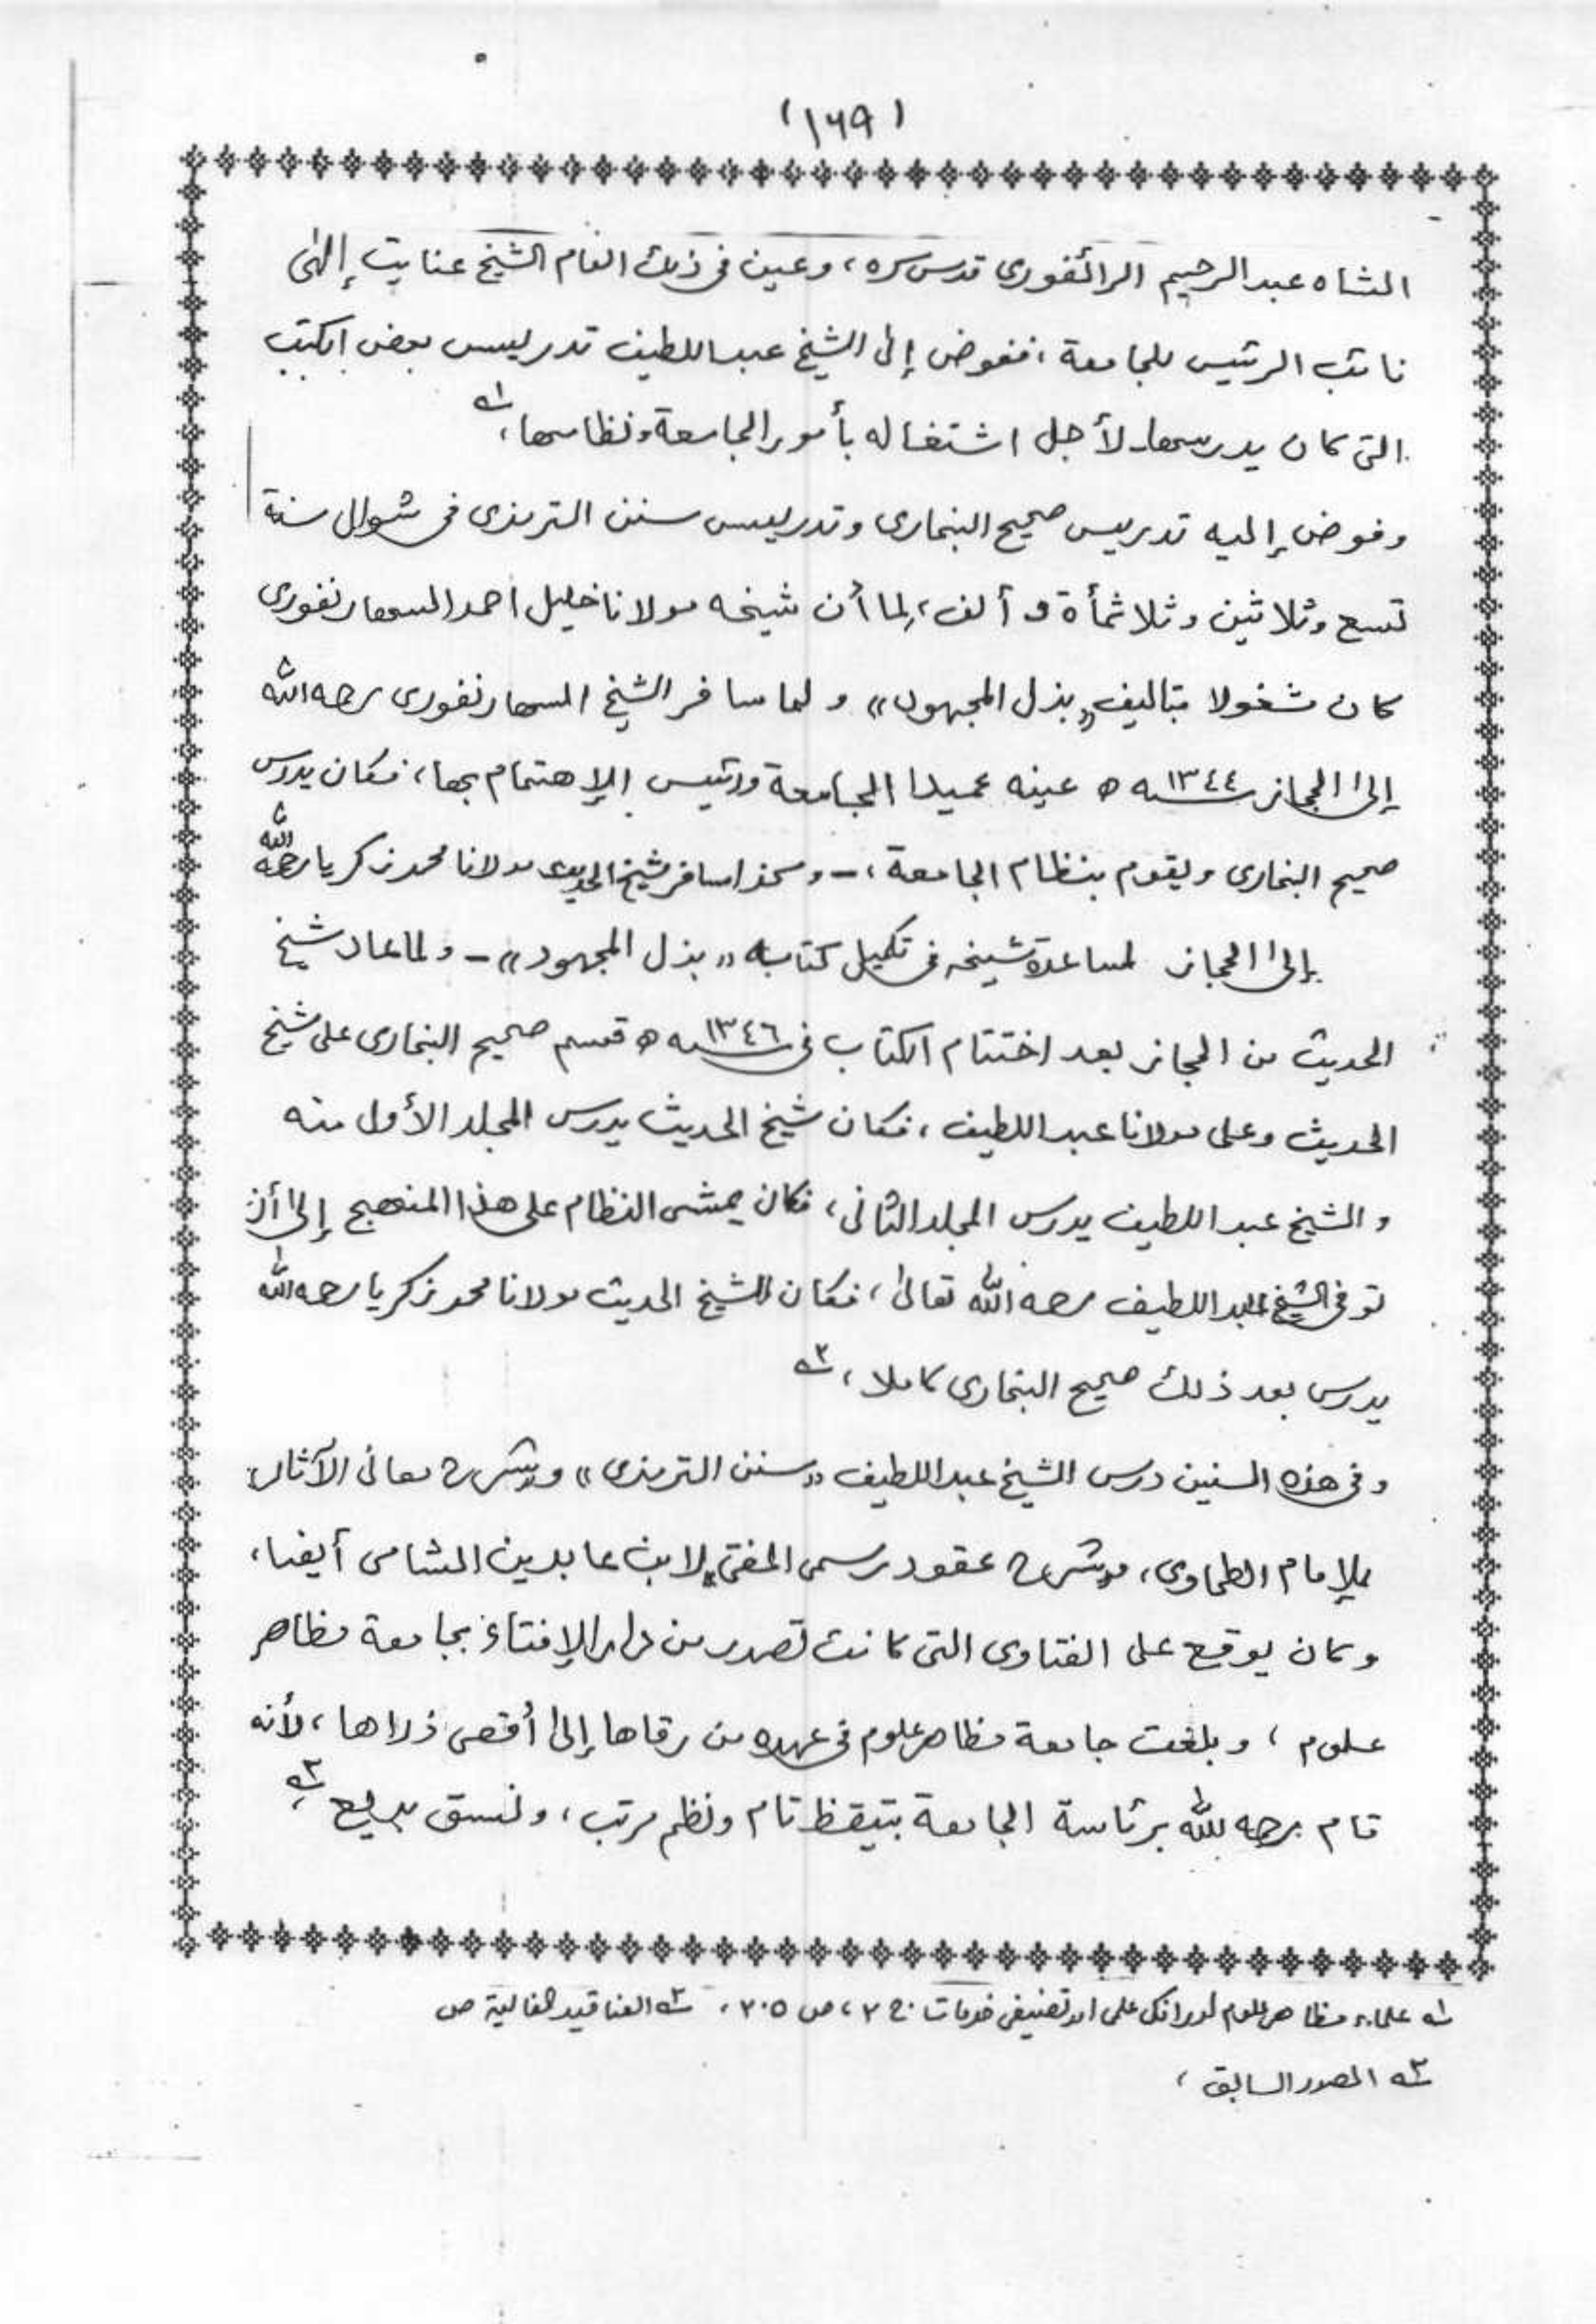 (١٦٩)
الشاه عبد الرحيم الرائفورى قدس سره، وعين فى ذلك العام الشيخ عنايت إلٰهى
نائب الرئيس للجامعة، ففوض إلى الشيخ عبد اللطيف تدريس بعض الكتب
التى كان يدرسها لأجل اشتغاله بأمور الجامعة ونظامها، ١ــه
وفوض إليه تدريس صحيح البخارى وتدريس سنن الترمذى فى شوال سنة
تسع وثلاثين وثلاثمأة و ألف، لِما أن شيخه مولانا خليل احمد السهارنفورى
كان شغولا بتاليف «بذل المجهود» و لما سافر الشيخ السهارنفورى رحمه الله
إلى الحجاز ١٣٤٤ــه ه عينه عميدا الجامعة ورئيس الإهتمام بها، فكان يدرس
صحيح البخارى ويقوم بنظام الجامعة، - و كذا سافر شيخ الحديث مولانا محمد زكريا رحمه الله
إلى الحجاز لمساعدة شيخه فى تكميل كتابه «بذل المجهود» - ولما عاد شيخ
الحديث من الحجاز بعد اختتام الكتاب فى ١٣٤٦ــه ه قسم صحيح البخارى على شيخ
الحديث وعلى مولانا عبد اللطيف، فكان شيخ الحديث يدرس المجلد الأول منه
و الشيخ عبد اللطيف يدرس المجلد الثانى، فكان يمشى النظام على هذا المنهج إلى أن
توفى الشيخ عبد اللطيف رحمه الله تعالىٰ، فكان الشيخ الحديث مولانا محمد زكريا رحمه الله
يدرس بعد ذلك صحيح البخارى كاملا، ٢ــه
و فى هذه السنين درس الشيخ عبد اللطيف «سنن الترمذى» و«شرح معانى الآثار»
للإمام الطحاوى، و«شرح عقود رسمى المفتى» لابن عابدين الشامى أيضا،
و كان يوقع على الفتاوى التى كانت تصدر من دار الإفتاء بجامعة مظاهر
علوم، و بلغت جامعة مظاهر علوم فى عهده من رقاها إلى أقصى ذراها، لأنه
قام رحمه الله برئاسة الجامعة بتيقظ تام ونظم مرتب، ونسق بديع ٣ــه
١ــه علماء مظاهر علوم اور انكى علمى اور تصنيفى خدمات ج ٢، ص ٢٠٥، ٢ــه العناقيد الغالية ص
٣ــه المصدر السابق،